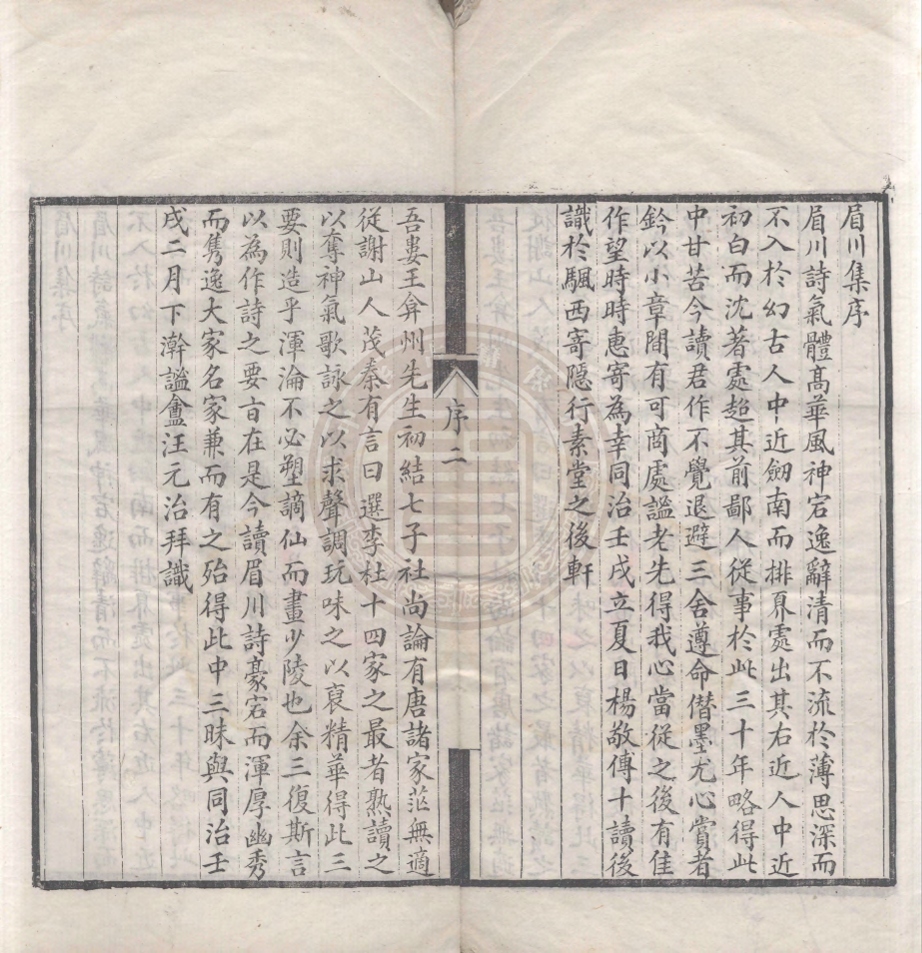 眉川集序
眉川詩氣體高華風神宕逸辭清而不流於薄思深而
不入於幻古人中近劒南而排奡處出其右近人中近
初白而沈著處超其前鄙人從事於此三十年略得此
中甘苦今讀君作不覺退避三舍遵命僣墨尤心賞者
鈐以小章閒有可商處謐老先得我心當從之後有佳
作望時時惠寄為幸同治壬戌立夏日楊敬傅十讀後
識於颿西寄隱行素堂之後軒
序二
吾婁王弇州先生初結七子社尚論有唐諸家茫無適
從謝山人茂秦有言曰選李杜十四家之最者熟讀之
以奪神氣歌詠之以求聲調玩味之以裒精華得此三
要則造乎渾淪不必塑謫仙而畫少陵也余三復斯言
以為作詩之要㫖在是今讀眉川詩豪宕而渾厚幽秀
而雋逸大家名家兼而有之殆得此中三昧與同治壬
戌二月下澣謐盦汪元治拜識